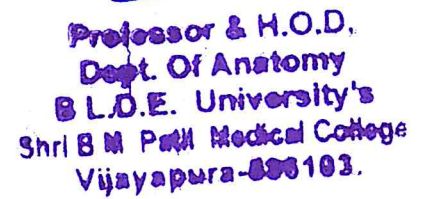 Professor & H.O.D,
Dept. Of Anatomy
B L.D.E. University's
Shri B M Patil Medical College
Vijayapura-586103.